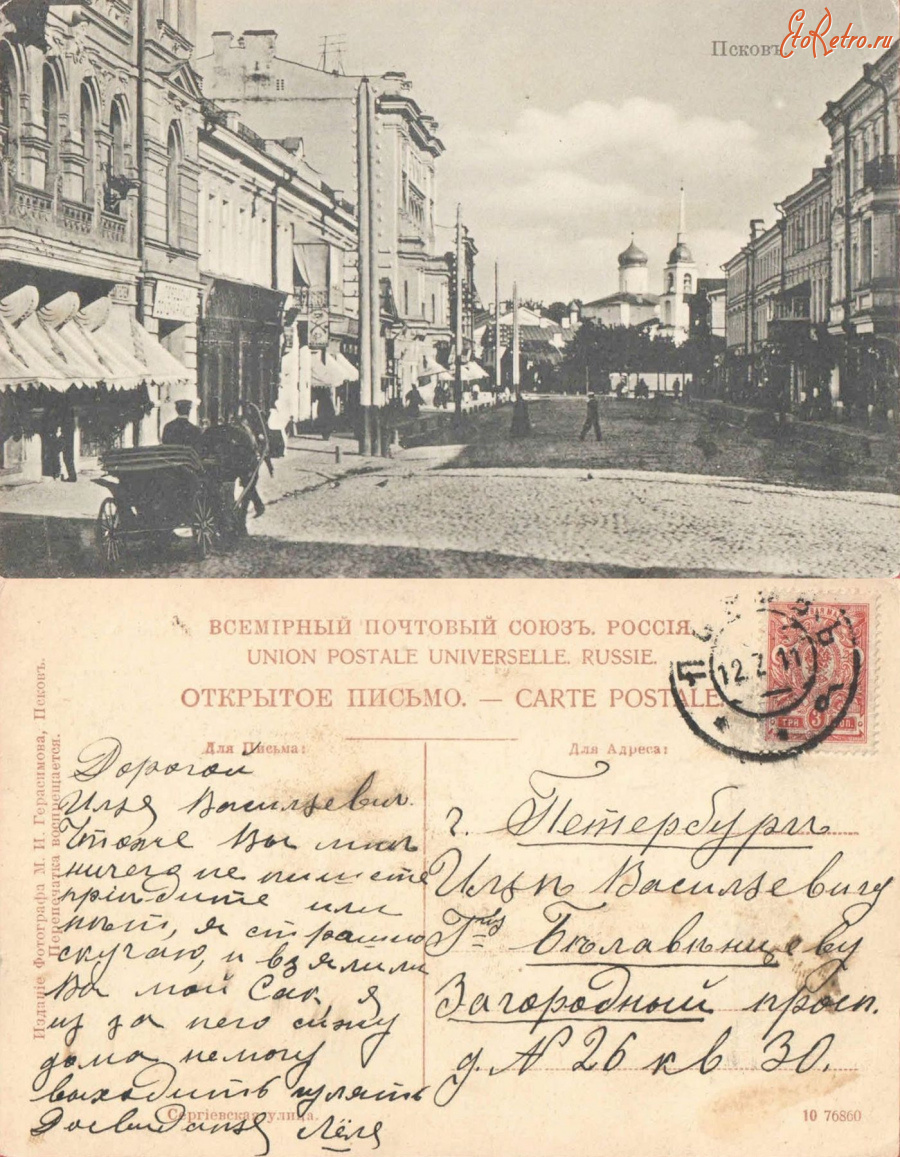 Псковъ
EtoRetro.ru
ВСЕМІРНЫЙ ПОЧТОВЫЙ СОЮЗЪ. РОССІЯ.
UNION POSTALE UNIVERSELLE. RUSSIE.
ОТКРЫТОЕ ПИСЬМО. — CARTE POSTALE.
ПСКОВЪ
12.7.11
ТРИ 3 КОП.
Для Письма:
Для Адреса:
Изданіе Фотографа М. И. Герасимова, Псковъ.
Перепечатка воспрещается.
Дорогой
Илья Васильевич.
Чтоже Вы мнѣ
ничего не пишете
пріидите или
нѣт, я страшно
скучаю, и взяли ли
Вы мой Сак, я
из за него сижу
дома немогу
выходить гулять
Досвиданья Лёля
г. Петербургъ
Ильѣ Васильевичу
Гну Бѣлавѣнцеву
Загородный просп.
д. N 26 кв 30.
Сергіевская улица.
10 76860